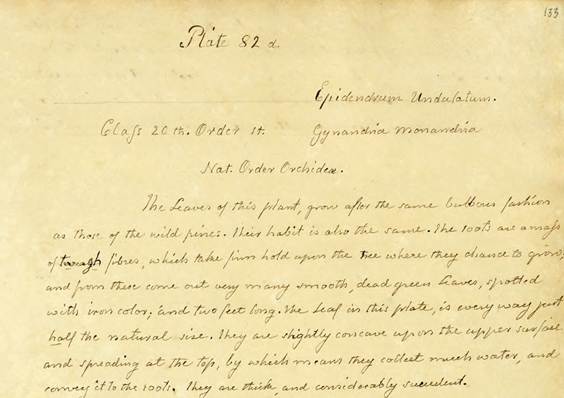 133
Plate 82 d.
Epidendrum Undulatum.
Class 20th. Order 1st. Gynandria Monandria
Nat. Order Orchideæ.
The Leaves of this plant, grow after the same bulbous fashion
as those of the wild pines. Their habit is also the same. The roots are a mass
of tough fibres, which take firm hold upon the tree where they chance to grow;
and from these come out very many smooth, dead green leaves, spotted
with iron color, and two feet long. The leaf in this plate, is every way just
half the natural size. They are slightly concave upon the upper surface
and spreading at the top, by which means they collect much water, and
convey it to the roots. They are thick, and considerably succulent.